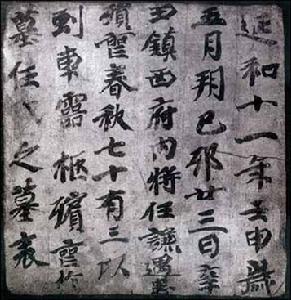 延和十一年壬申歲
五月朔己卯廿三日辛
丑鎮西府內將任謙遇患
殞靈春秋七十有三以
車靈柩殯
墓任氏之墓表